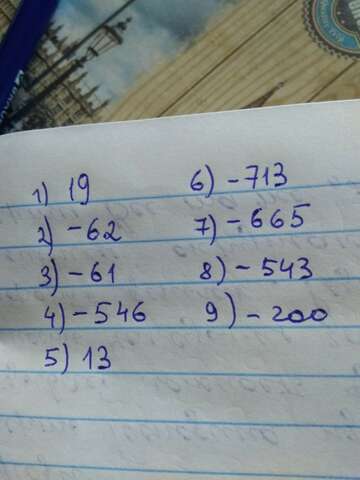 1) 19
2) -62
3) -61
4) -546
5) 13
6) -713
7) -665
8) -543
9) -200